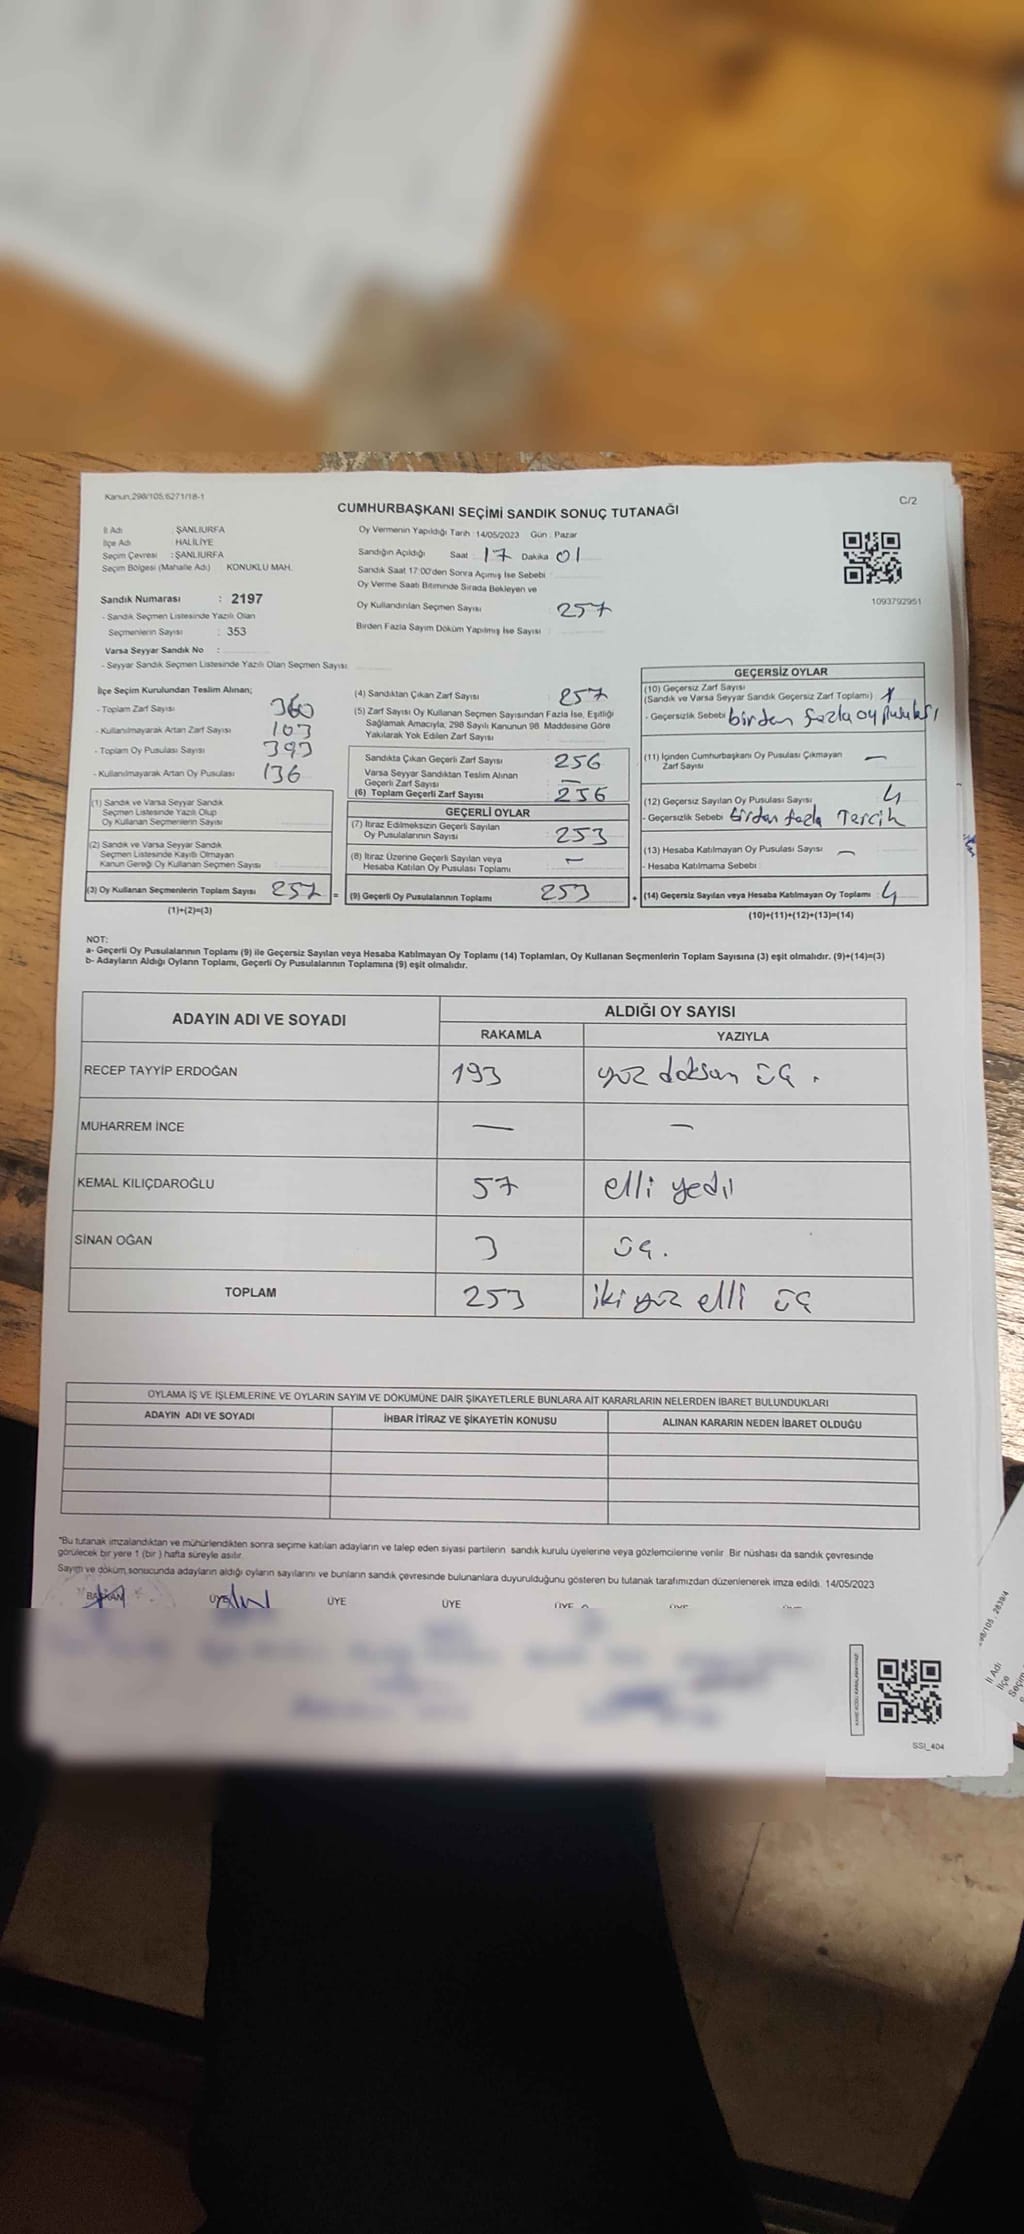 Kanun:298/105;6271/18-1
C/2
CUMHURBAŞKANI SEÇİMİ SANDIK SONUÇ TUTANAĞI
İl Adı : ŞANLIURFA
İlçe Adı : HALİLİYE
Seçim Çevresi : ŞANLIURFA
Seçim Bölgesi (Mahalle Adı) KONUKLU MAH.
Sandık Numarası : 2197
- Sandık Seçmen Listesinde Yazılı Olan
Seçmenlerin Sayısı : 353
Varsa Seyyar Sandık No :
- Seyyar Sandık Seçmen Listesinde Yazılı Olan Seçmen Sayısı
Oy Vermenin Yapıldığı Tarih : 14/05/2023 Gün : Pazar
Sandığın Açıldığı Saat 17 Dakika 01
Sandık Saat 17:00'den Sonra Açımış İse Sebebi
Oy Verme Saati Bitiminde Sırada Bekleyen ve
Oy Kullandırılan Seçmen Sayısı 257
Birden Fazla Sayım Döküm Yapılmış İse Sayısı :
1093792951
İlçe Seçim Kurulundan Teslim Alınan;
- Toplam Zarf Sayısı 360
- Kullanılmayarak Artan Zarf Sayısı 103
- Toplam Oy Pusulası Sayısı 393
- Kullanılmayarak Artan Oy Pusulası 136
(1) Sandık ve Varsa Seyyar Sandık
Seçmen Listesinde Yazılı Olup
Oy Kullanan Seçmenlerin Sayısı
(2) Sandık ve Varsa Seyyar Sandık
Seçmen Listesinde Kayıtlı Olmayan
Kanun Gereği Oy Kullanan Seçmen Sayısı
(3) Oy Kullanan Seçmenlerin Toplam Sayısı 257 =
(1)+(2)=(3)
(4) Sandıktan Çıkan Zarf Sayısı 257
(5) Zarf Sayısı Oy Kullanan Seçmen Sayısından Fazla İse, Eşitliği
Sağlamak Amacıyla; 298 Sayılı Kanunun 98. Maddesine Göre
Yakılarak Yok Edilen Zarf Sayısı
Sandıkta Çıkan Geçerli Zarf Sayısı 256
Varsa Seyyar Sandıktan Teslim Alınan
Geçerli Zarf Sayısı —
(6) Toplam Geçerli Zarf Sayısı 256
GEÇERLİ OYLAR
(7) İtiraz Edilmeksizin Geçerli Sayılan
Oy Pusulalarının Sayısı 253
(8) İtiraz Üzerine Geçerli Sayılan veya
Hesaba Katılan Oy Pusulası Toplamı —
(9) Geçerli Oy Pusulalarının Toplamı 253 +
GEÇERSİZ OYLAR
(10) Geçersiz Zarf Sayısı
(Sandık ve Varsa Seyyar Sandık Geçersiz Zarf Toplamı)
- Geçersizlik Sebebi birden fazla oy pusulası
(11) İçinden Cumhurbaşkanı Oy Pusulası Çıkmayan
Zarf Sayısı —
(12) Geçersiz Sayılan Oy Pusulası Sayısı 4
- Geçersizlik Sebebi birden fazla Tercih
(13) Hesaba Katılmayan Oy Pusulası Sayısı —
- Hesaba Katılmama Sebebi
(14) Geçersiz Sayılan veya Hesaba Katılmayan Oy Toplamı : 4
(10)+(11)+(12)+(13)=(14)
NOT:
a- Geçerli Oy Pusulalarının Toplamı (9) ile Geçersiz Sayılan veya Hesaba Katılmayan Oy Toplamı (14) Toplamları, Oy Kullanan Seçmenlerin Toplam Sayısına (3) eşit olmalıdır. (9)+(14)=(3)
b- Adayların Aldığı Oyların Toplamı, Geçerli Oy Pusulalarının Toplamına (9) eşit olmalıdır.
ADAYIN ADI VE SOYADI ALDIĞI OY SAYISI
RAKAMLA YAZIYLA
RECEP TAYYİP ERDOĞAN 193 yüz doksan üç.
MUHARREM İNCE — —
KEMAL KILIÇDAROĞLU 57 elli yedi
SİNAN OĞAN 3 üç.
TOPLAM 253 iki yüz elli üç
OYLAMA İŞ VE İŞLEMLERİNE VE OYLARIN SAYIM VE DÖKÜMÜNE DAİR ŞİKAYETLERLE BUNLARA AİT KARARLARIN NELERDEN İBARET BULUNDUKLARI
ADAYIN ADI VE SOYADI İHBAR İTİRAZ VE ŞİKAYETİN KONUSU ALINAN KARARIN NEDEN İBARET OLDUĞU
"Bu tutanak imzalandıktan ve mühürlendikten sonra seçime katılan adayların ve talep eden siyasi partilerin sandık kurulu üyelerine veya gözlemcilerine verilir. Bir nüshası da sandık çevresinde
görülecek bir yere 1 (bir ) hafta süreyle asılır.
Sayım ve döküm sonucunda adayların aldığı oyların sayılarını ve bunların sandık çevresinde bulunanlara duyurulduğunu gösteren bu tutanak tarafımızdan düzenlenerek imza edildi. 14/05/2023
BAŞKAN ÜYE ÜYE ÜYE ÜYE
SSI_404
İl Adı
İlçe
Seçim